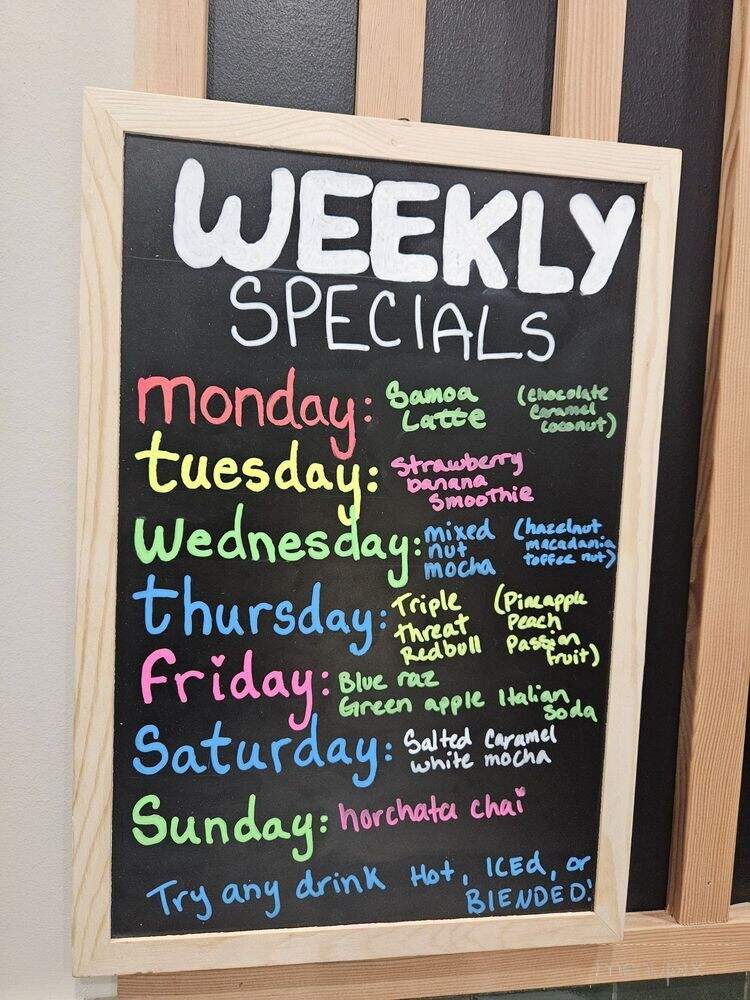 WEEKLY
SPECIALS
monday: Samoa Latte (chocolate caramel coconut)
tuesday: Strawberry banana Smoothie
Wednesday: mixed nut mocha (hazelnut macadamia toffee nut)
thursday: Triple threat Redbull (Pineapple Peach Passion fruit)
Friday: Blue raz Green apple Italian Soda
Saturday: Salted Caramel white mocha
Sunday: horchata chai
Try any drink Hot, ICEd, or
BlENDED!